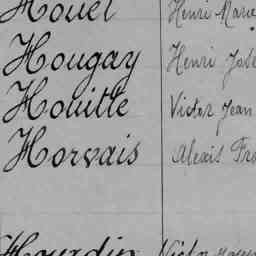 Houel Henri Marie
Hougay Henri
Houitte Victor Jean
Horvais Alexis
Hourdin Victor